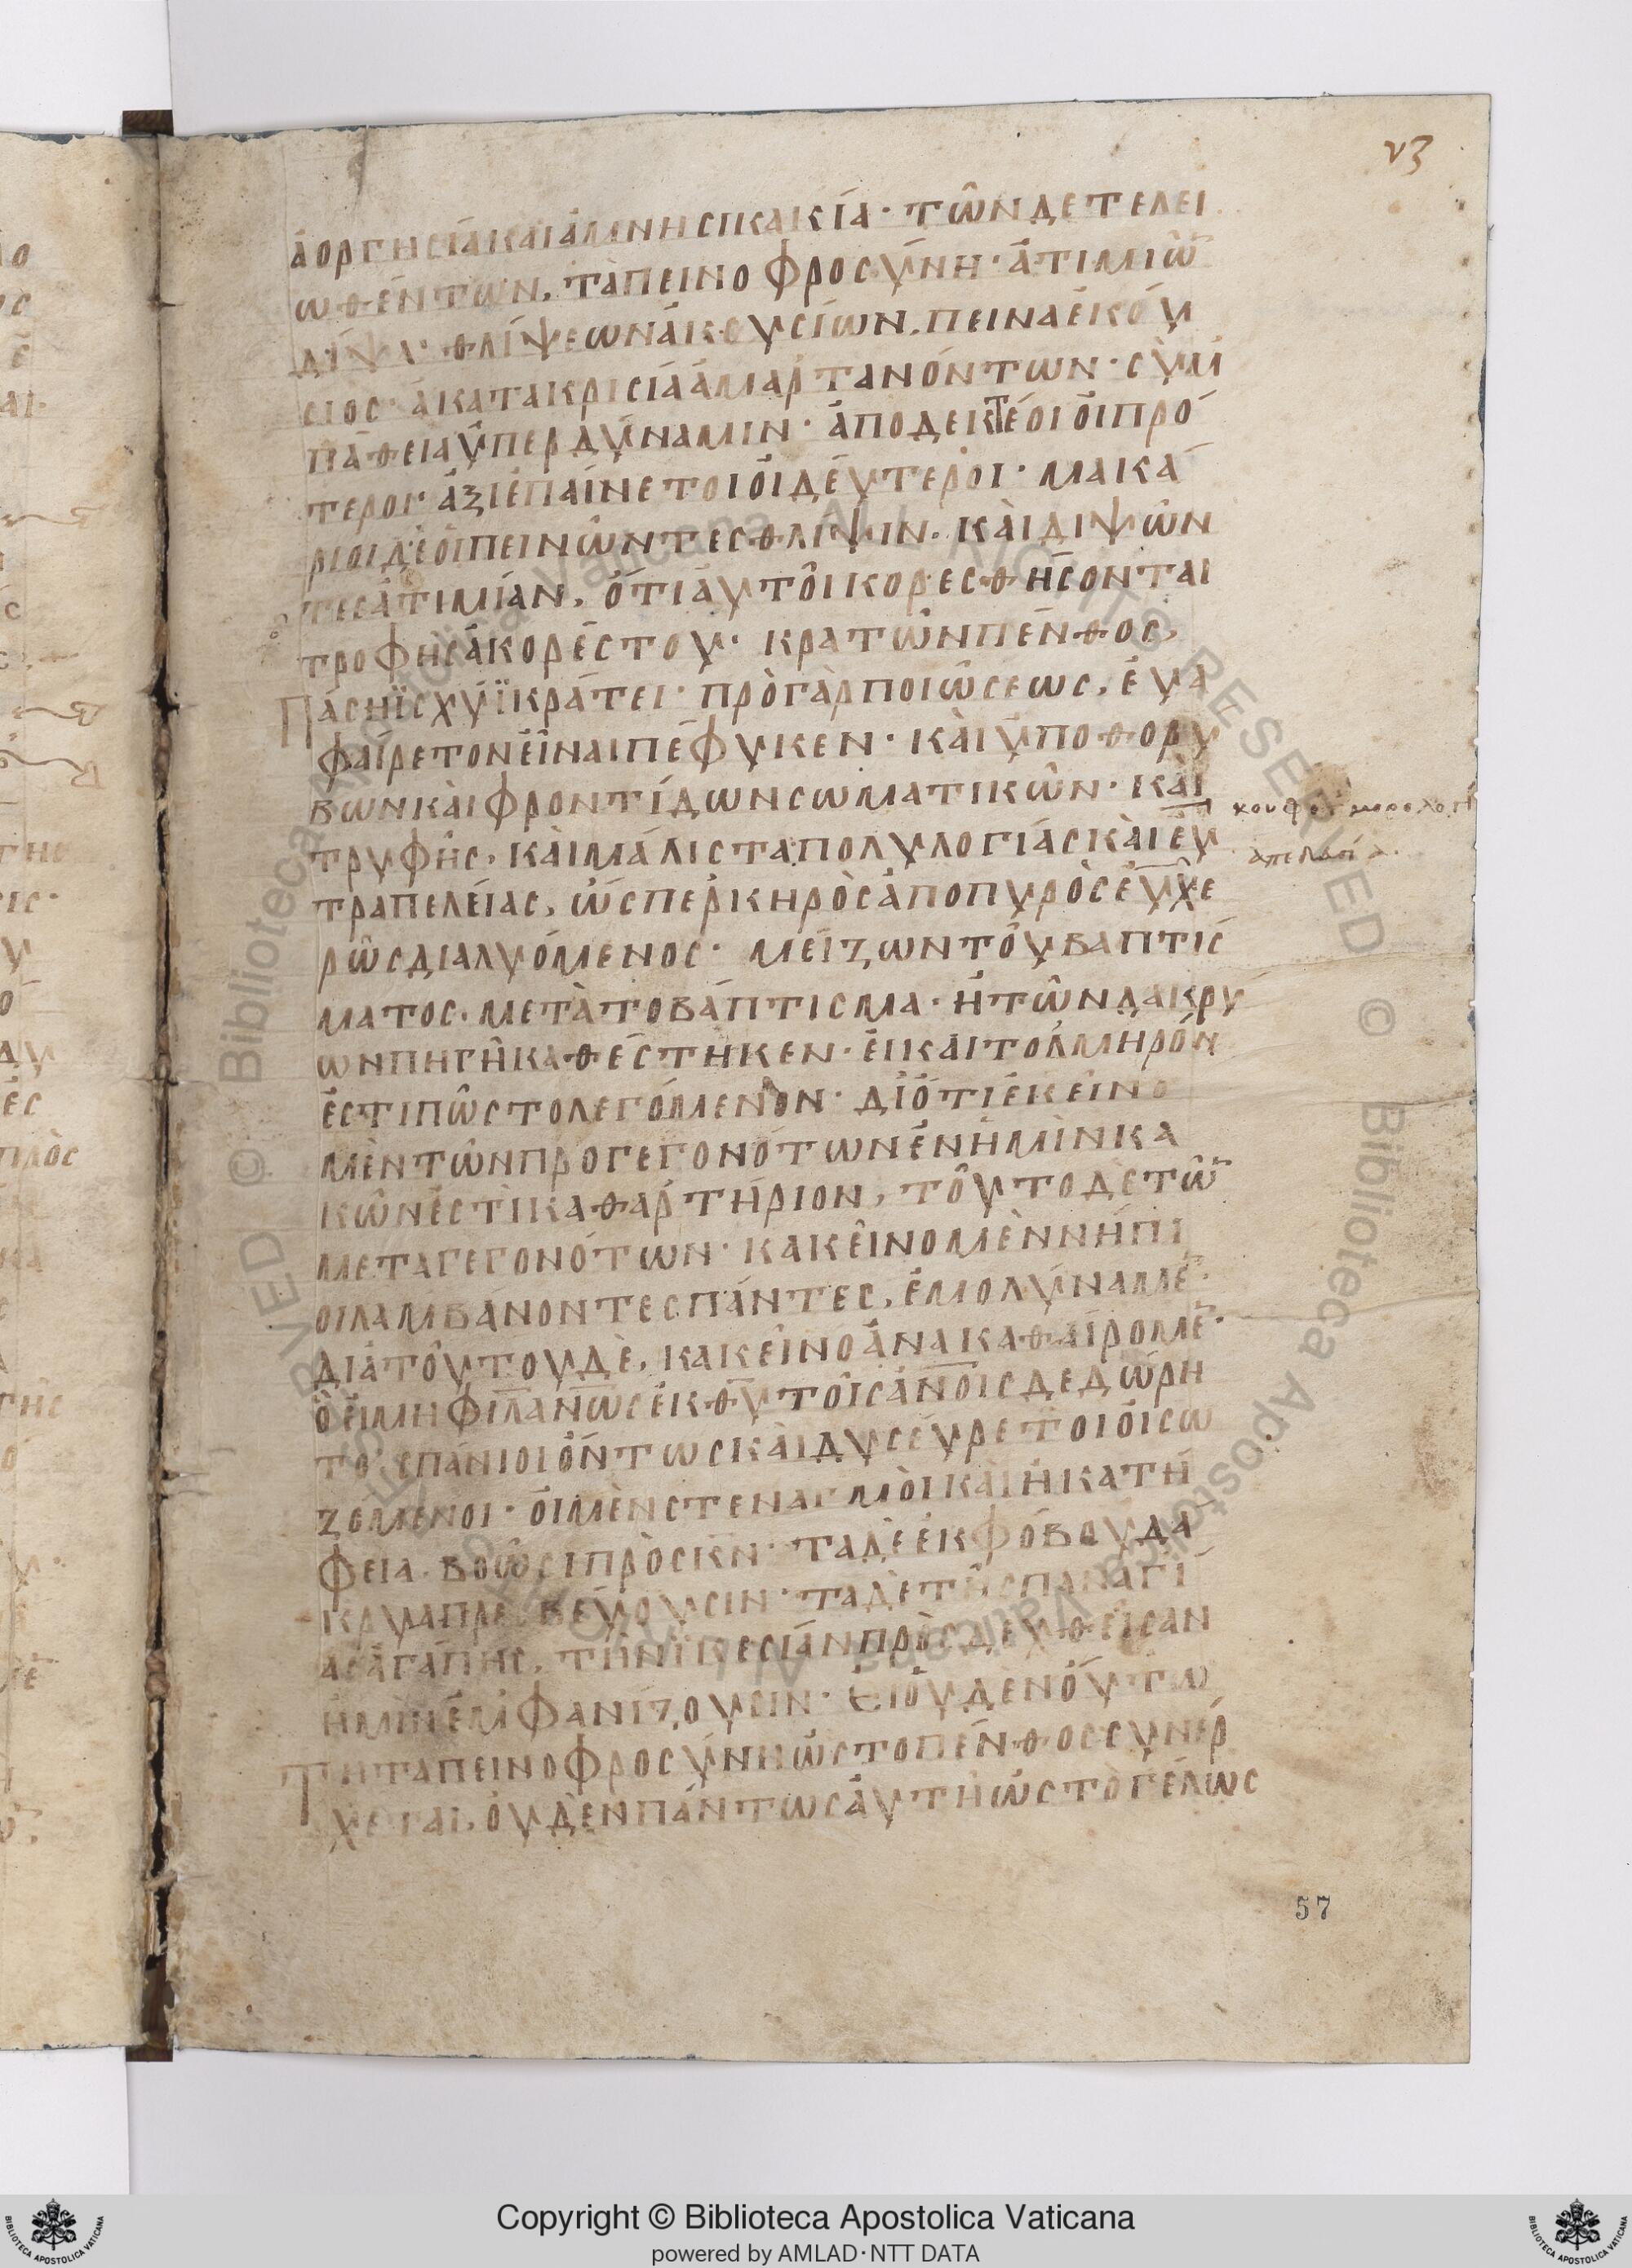 νζ
ἀοργησία καὶ ἀμνησικακία· τῶν δε τελει
ωθέντων, ταπεινοφροσύνη· ἀτιμιῶ̅
δίψα· θλίψεων ἀκουσίων, πεῖνα ἑκού
σιος· ἀκατακρισία ἁμαρτανόντων· συμ
πάθεια ὑπερ δύναμιν· ἀποδεκτέοι οἱ πρό
τεροι· ἀξιέπαίνετοι οἱ δεύτεροι· μακά
ριοι δὲ οἱ πεινῶντες θλίψιν. καὶ διψῶν
τες ἀτιμίαν, ὅτι αὐτοὶ κορεσθήσονται
τροφῆς ἀκορέστου· κρατῶν πένθος,
Πάση ϊσχύϊ κράτει· πρὸ γὰρ ποιώσεως, ἐυα
φαίρετον εἶναι πέφυκεν· καὶ ὑπο θορύ
βων καὶ φροντίδων σωματικῶν· καὶ
τρυφῆς, καὶ μάλιστα πολυλογίας καὶ εὐ
τραπελείας, ὥσπερ κηρὸς ἀπο πυρὸς εὐχε
ρῶς διαλυόμενος· μείζων τοῦ βαπτίσ
ματος. μετὰ το βάπτισμα. ἡ τῶν δακρύ
ων πηγὴ καθέστηκεν· εἰ καὶ τολμηρόν
ἐστι πῶς το λεγόμενον· διότι ἐκεῖνο
μὲν τῶν προγεγονότων ἐν ἡμῖν κα
κῶν ἐστὶ καθαρτήριον, τοῦτο δὲ τῶ̅
μεταγεγονότων· κακεῖνο μὲν νήπι
οι λαμβάνοντες πάντες, ἐμολύναμε̅·
διὰ τούτου δὲ, κακεῖνο ἀνακαθαίρομε̅·
ὃ εἰ μὴ φιλα̅νω̅ς ἐκ θ̅υ̅ τοῖς α̅νοις δεδώρη
το, σπάνιοι ὄντως καὶ δυσεύρετοι οἱ σω
ζόμενοι· οἱ μὲν στεναγμοὶ καὶ ἡ κατή
φεια. βοῶσι πρὸς κ̅ν̅· τα δὲ ἐκ φόβου δά
κρυα πρεσβεύουσιν· τα δὲ τῆς παναγί
ας ἀγάπης, τὴν ϊκεσίαν προσδεχθεῖσαν
ἡμῖν ἐμφανίζουσιν· Εἰ οὐδὲν οὕτω
Τῆ ταπεινοφροσύνη ὡς το πένθος συνέρ
χεται, οὐδὲν πάντως αὐτῆ ὡς τὸ γέλως
57
Copyright © Biblioteca Apostolica Vaticana
powered by AMLAD·NTT DATA